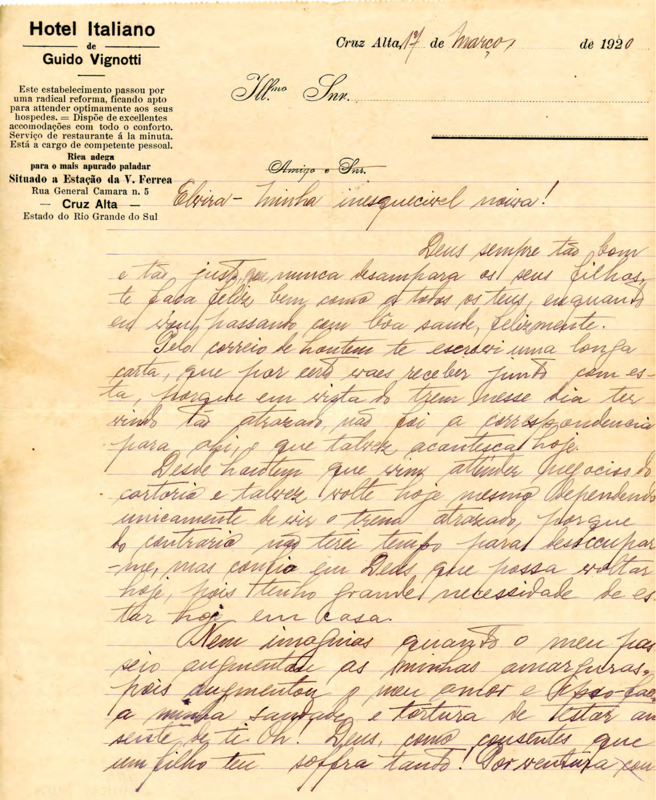 Hotel Italiano
de
Guido Vignotti
Este estabelecimento passou por
uma radical reforma, ficando apto
para attender optimamente aos seus
hospedes. = Dispõe de excellentes
accomodações com todo o conforto.
Serviço de restaurante á la minuta.
Está a cargo de competente pessoal.
Rica adega
para o mais apurado paladar
Situado a Estação da V. Ferrea
Rua General Camara n. 5
— Cruz Alta —
Estado do Rio Grande do Sul
Cruz Alta, 17 de Março de 1920
Ill.mo Snr.
Amigo e Snr.
Elvira - Minha inesquecivel noiva!
Deus sempre tão bom
e tão justo, que nunca desampara os seus filhos,
te faça feliz bem como a todos os teus, enquanto
eu vou passando com bôa saude, felizmente.
Pelo correio de hontem te escrevi uma longa
carta, que por certo vaes receber junto com es-
ta, porque em vista do trem nesse dia ter
vindo tão atrazado, não foi a correspondencia
para ahi, o que talvez aconteça hoje.
Desde hontem que vim attender negocios do
cartorio e talvez volte hoje mesmo dependendo
unicamente de vir o trem atrazado, porque
do contrario não terei tempo para desoccupar
-me, mas confio em Deus que possa voltar
hoje, pois tenho grande necessidade de es-
tar hoje em casa.
Nem imaginas quando o meu pas
seio augmentou as minhas amarguras,
pois augmentou o meu amor e
a minha saudade e tortura de estar au
sente de ti. Oh! Deus, como consentes que
um filho teu soffra tanto! Por ventura con